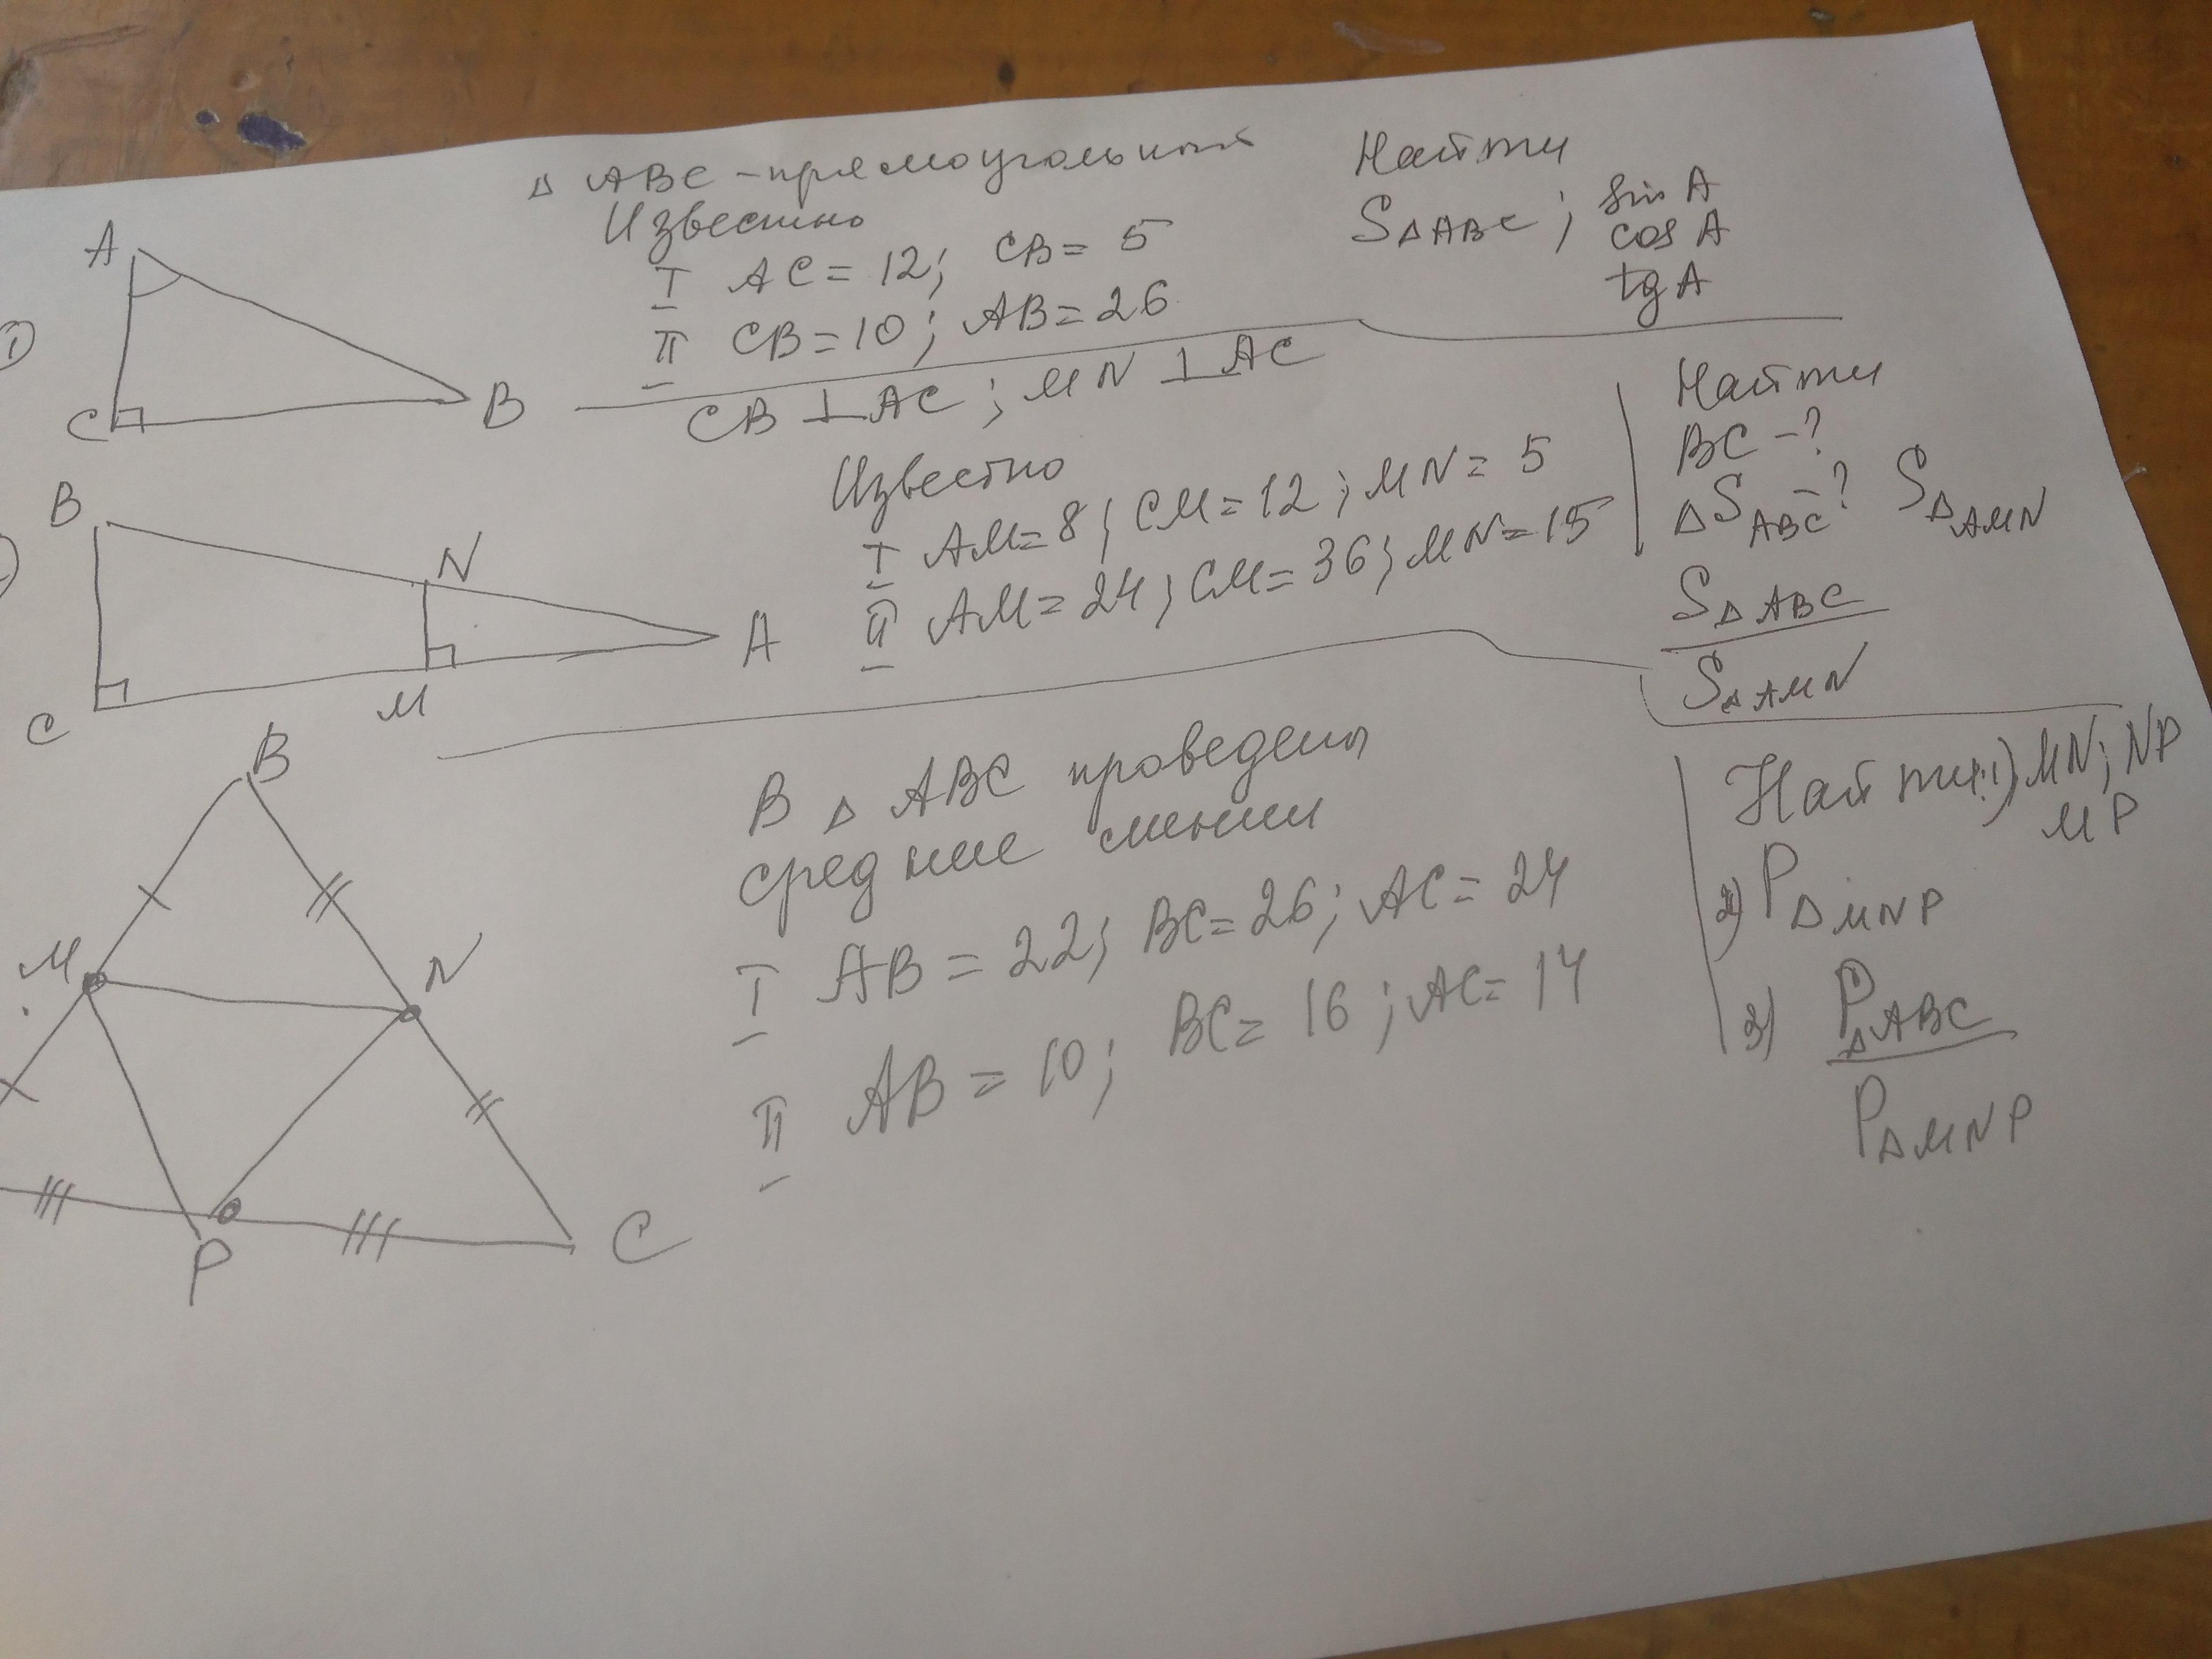 Δ ABC - прямоугольный
Известно
I AC = 12; CB = 5
II CB = 10; AB = 26
Найти
S Δ ABC; sin A
cos A
tg A
1)
A
C
B
CB ⊥ AC; MN ⊥ AC
Известно
I AM = 8; CM = 12; MN = 5
II AM = 24; CM = 36; MN = 15
Найти
BC - ?
Δ S ABC - ? S Δ AMN
S Δ ABC
S Δ AMN
B
N
A
C
M
В Δ ABC проведены
средние линии
I AB = 22; BC = 26; AC = 24
II AB = 10; BC = 16; AC = 14
Найти: 1) MN; NP
MP
2) P Δ MNP
3) P Δ ABC
P Δ MNP
B
M
N
P
C